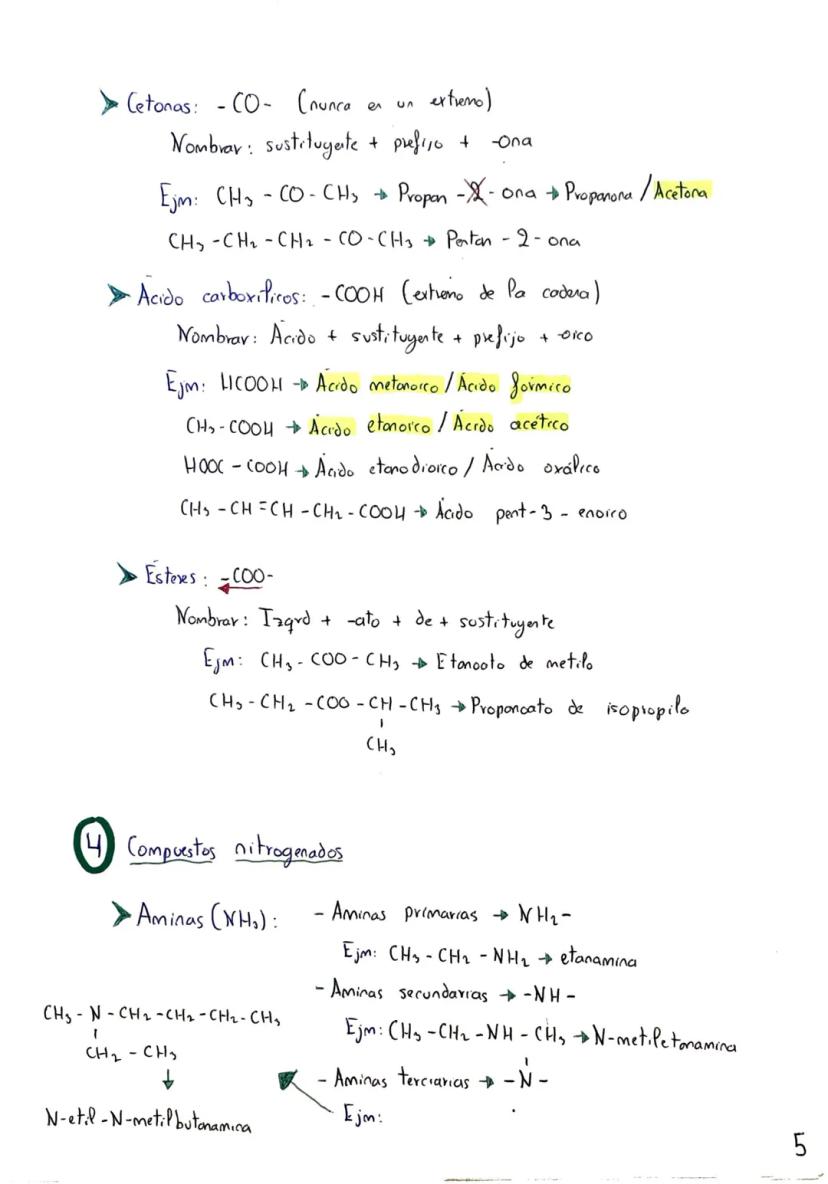 Cetonas: - CO - (nunca en un extremo)
Nombrar: sustituyente + prefijo + -ona
Ejm: CH₃ - CO - CH₃ → Propan - 2 - ona → Propanona / Acetona
CH₃ - CH₂ - CH₂ - CO - CH₃ → Pentan - 2 - ona
Ácido carboxílicos: - COOH (extremo de la cadena)
Nombrar: Ácido + sustituyente + prefijo + -oico
Ejm: HCOOH → Ácido metanoico / Ácido fórmico
CH₃ - COOH → Ácido etanoico / Ácido acético
HOOC - COOH → Ácido etanodioico / Ácido oxálico
CH₃ - CH = CH - CH₂ - COOH → Ácido pent - 3 - enoico
Ésteres: - COO -
Nombrar: Izqrd + -ato + de + sustituyente
Ejm: CH₃ - COO - CH₃ → Etanoato de metilo
CH₃ - CH₂ - COO - CH - CH₃ → Propanoato de isopropilo
CH₃
4 Compuestos nitrogenados
Aminas (NH₃): - Aminas primarias → NH₂ -
Ejm: CH₃ - CH₂ - NH₂ → etanamina
- Aminas secundarias → - NH -
Ejm: CH₃ - CH₂ - NH - CH₃ → N-metiletanamina
- Aminas terciarias → - N -
Ejm:
CH₃ - N - CH₂ - CH₂ - CH₂ - CH₃
CH₂ - CH₃
N-etil-N-metilbutanamina
5